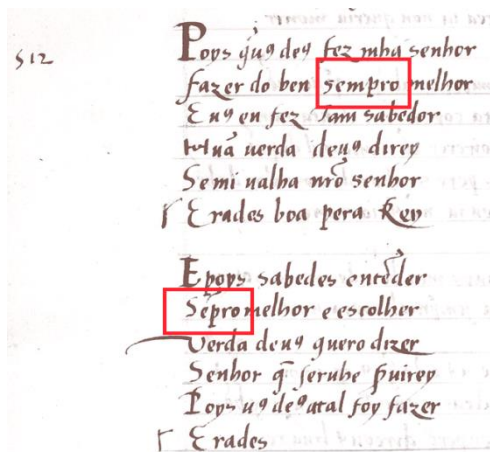 512
Poys qu9 de9 fez mha senhor
fazer do ben sempro melhor
E u9 en fez tam sabedor
hũa uerda deu9 direy
Semi ualha nr̃o senhor
Erades boa pera Rey
Epoys sabedes entẽder
Sẽpro melhor e escolher
Uerda deu9 quero dizer
Senhor q̃ seruhe
Poys u9 de9 atal foy fazer
Erades